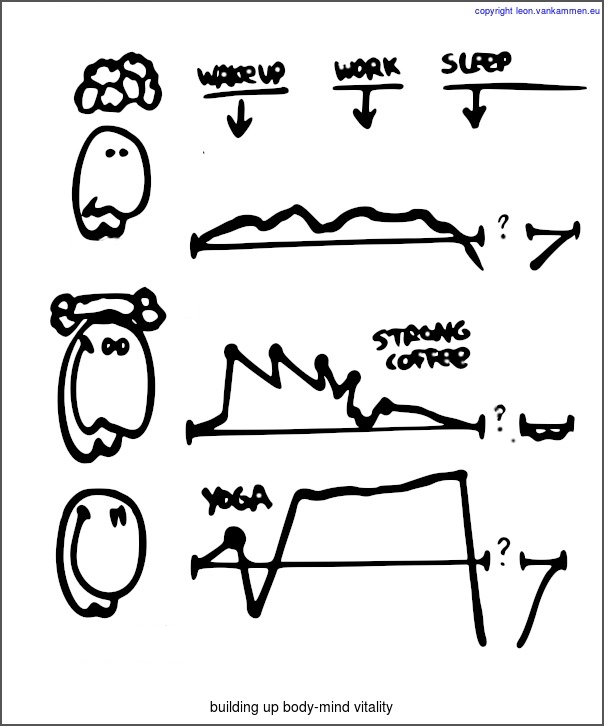 copyright leon.vankammen.eu
WAKE UP WORK SLEEP
?
STRONG
COFFEE
?
YOGA
?
building up body-mind vitality